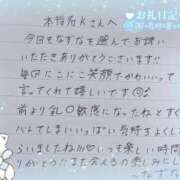 ♥お礼日記
本指名Kさんへ
今日もなずなを選んでお誘い
いただきありがとうございます!!
毎回にこにこ笑顔でかわいいって
言ってくれて嬉しいです
前より乳〇敏感になったねとす
バレてしまいいっぱい気持ちよくして
もらいましたね!!!♡いつも楽しい時間あ
りがとう
また会えるの楽しみにし
なずな